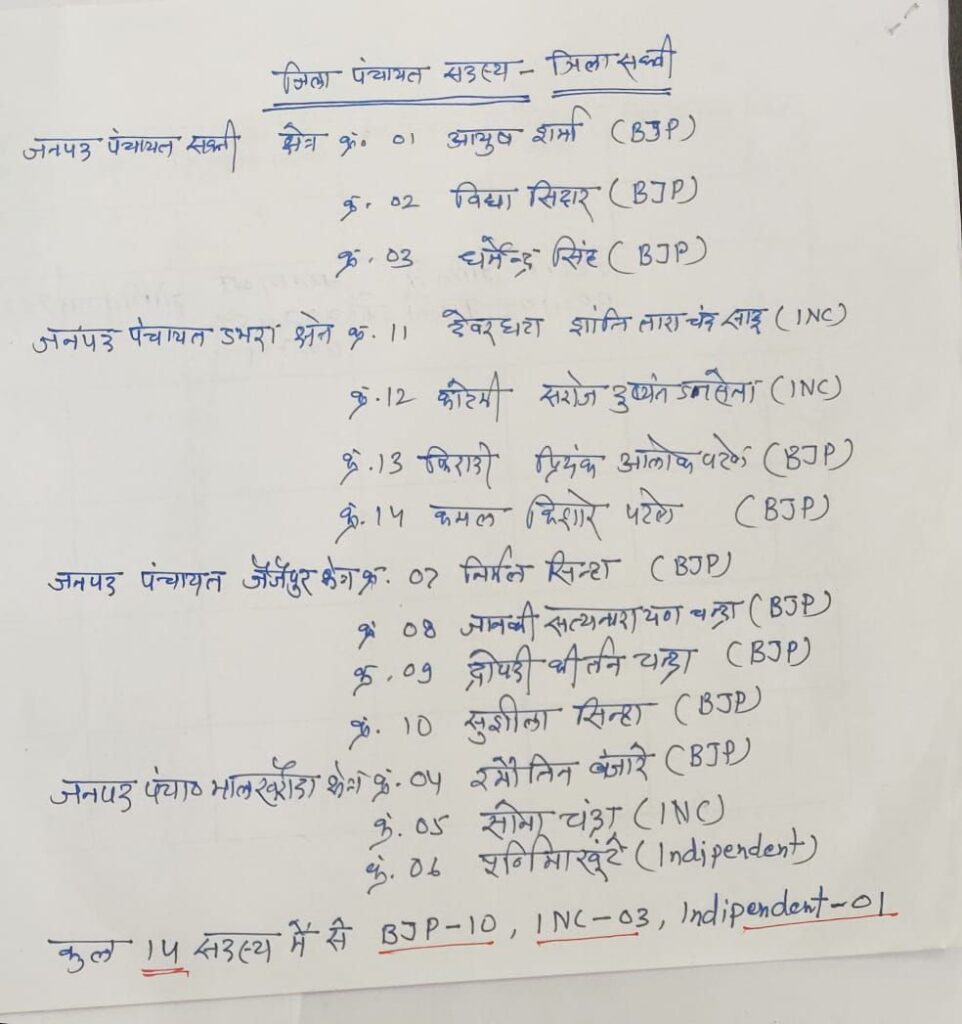 जिला पंचायत सदस्य - जिला सक्ती
जनपद पंचायत सक्ती क्षेत्र क्रं. 01 आयुष शर्मा (BJP)
क्रं. 02 विद्या सिदार (BJP)
क्रं. 03 धर्मेन्द्र सिंह (BJP)
जनपद पंचायत डभरा क्षेत्र क्रं. 11 देवरघटा शांति तारा चंद साहू (INC)
क्रं. 12 कोटमी सरोज दुष्यंत (INC)
क्रं. 13 किरारी प्रियंक आलोक पटेल (BJP)
क्रं. 14 कमल किशोर पटेल (BJP)
जनपद पंचायत जैजैपुर क्षेत्र क्रं. 07 निर्मल सिन्हा (BJP)
क्रं 08 जानकी सत्यनारायण चन्द्रा (BJP)
क्रं. 09 द्रोपदी कीर्तन चन्द्रा (BJP)
क्रं. 10 सुशीला सिन्हा (BJP)
जनपद पंचा० मालखरौदा क्षेत्र क्रं. 04 बंजारे (BJP)
क्रं. 05 चंद्रा (INC)
क्रं. 06 खूंटे (Indipendent)
कुल 14 सदस्य में से BJP-10, INC-03, Indipendent-01